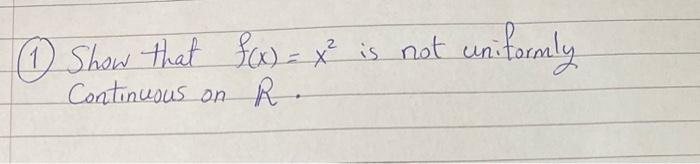 ① Show that f(x) = x² is not uniformly
Continuous on R.